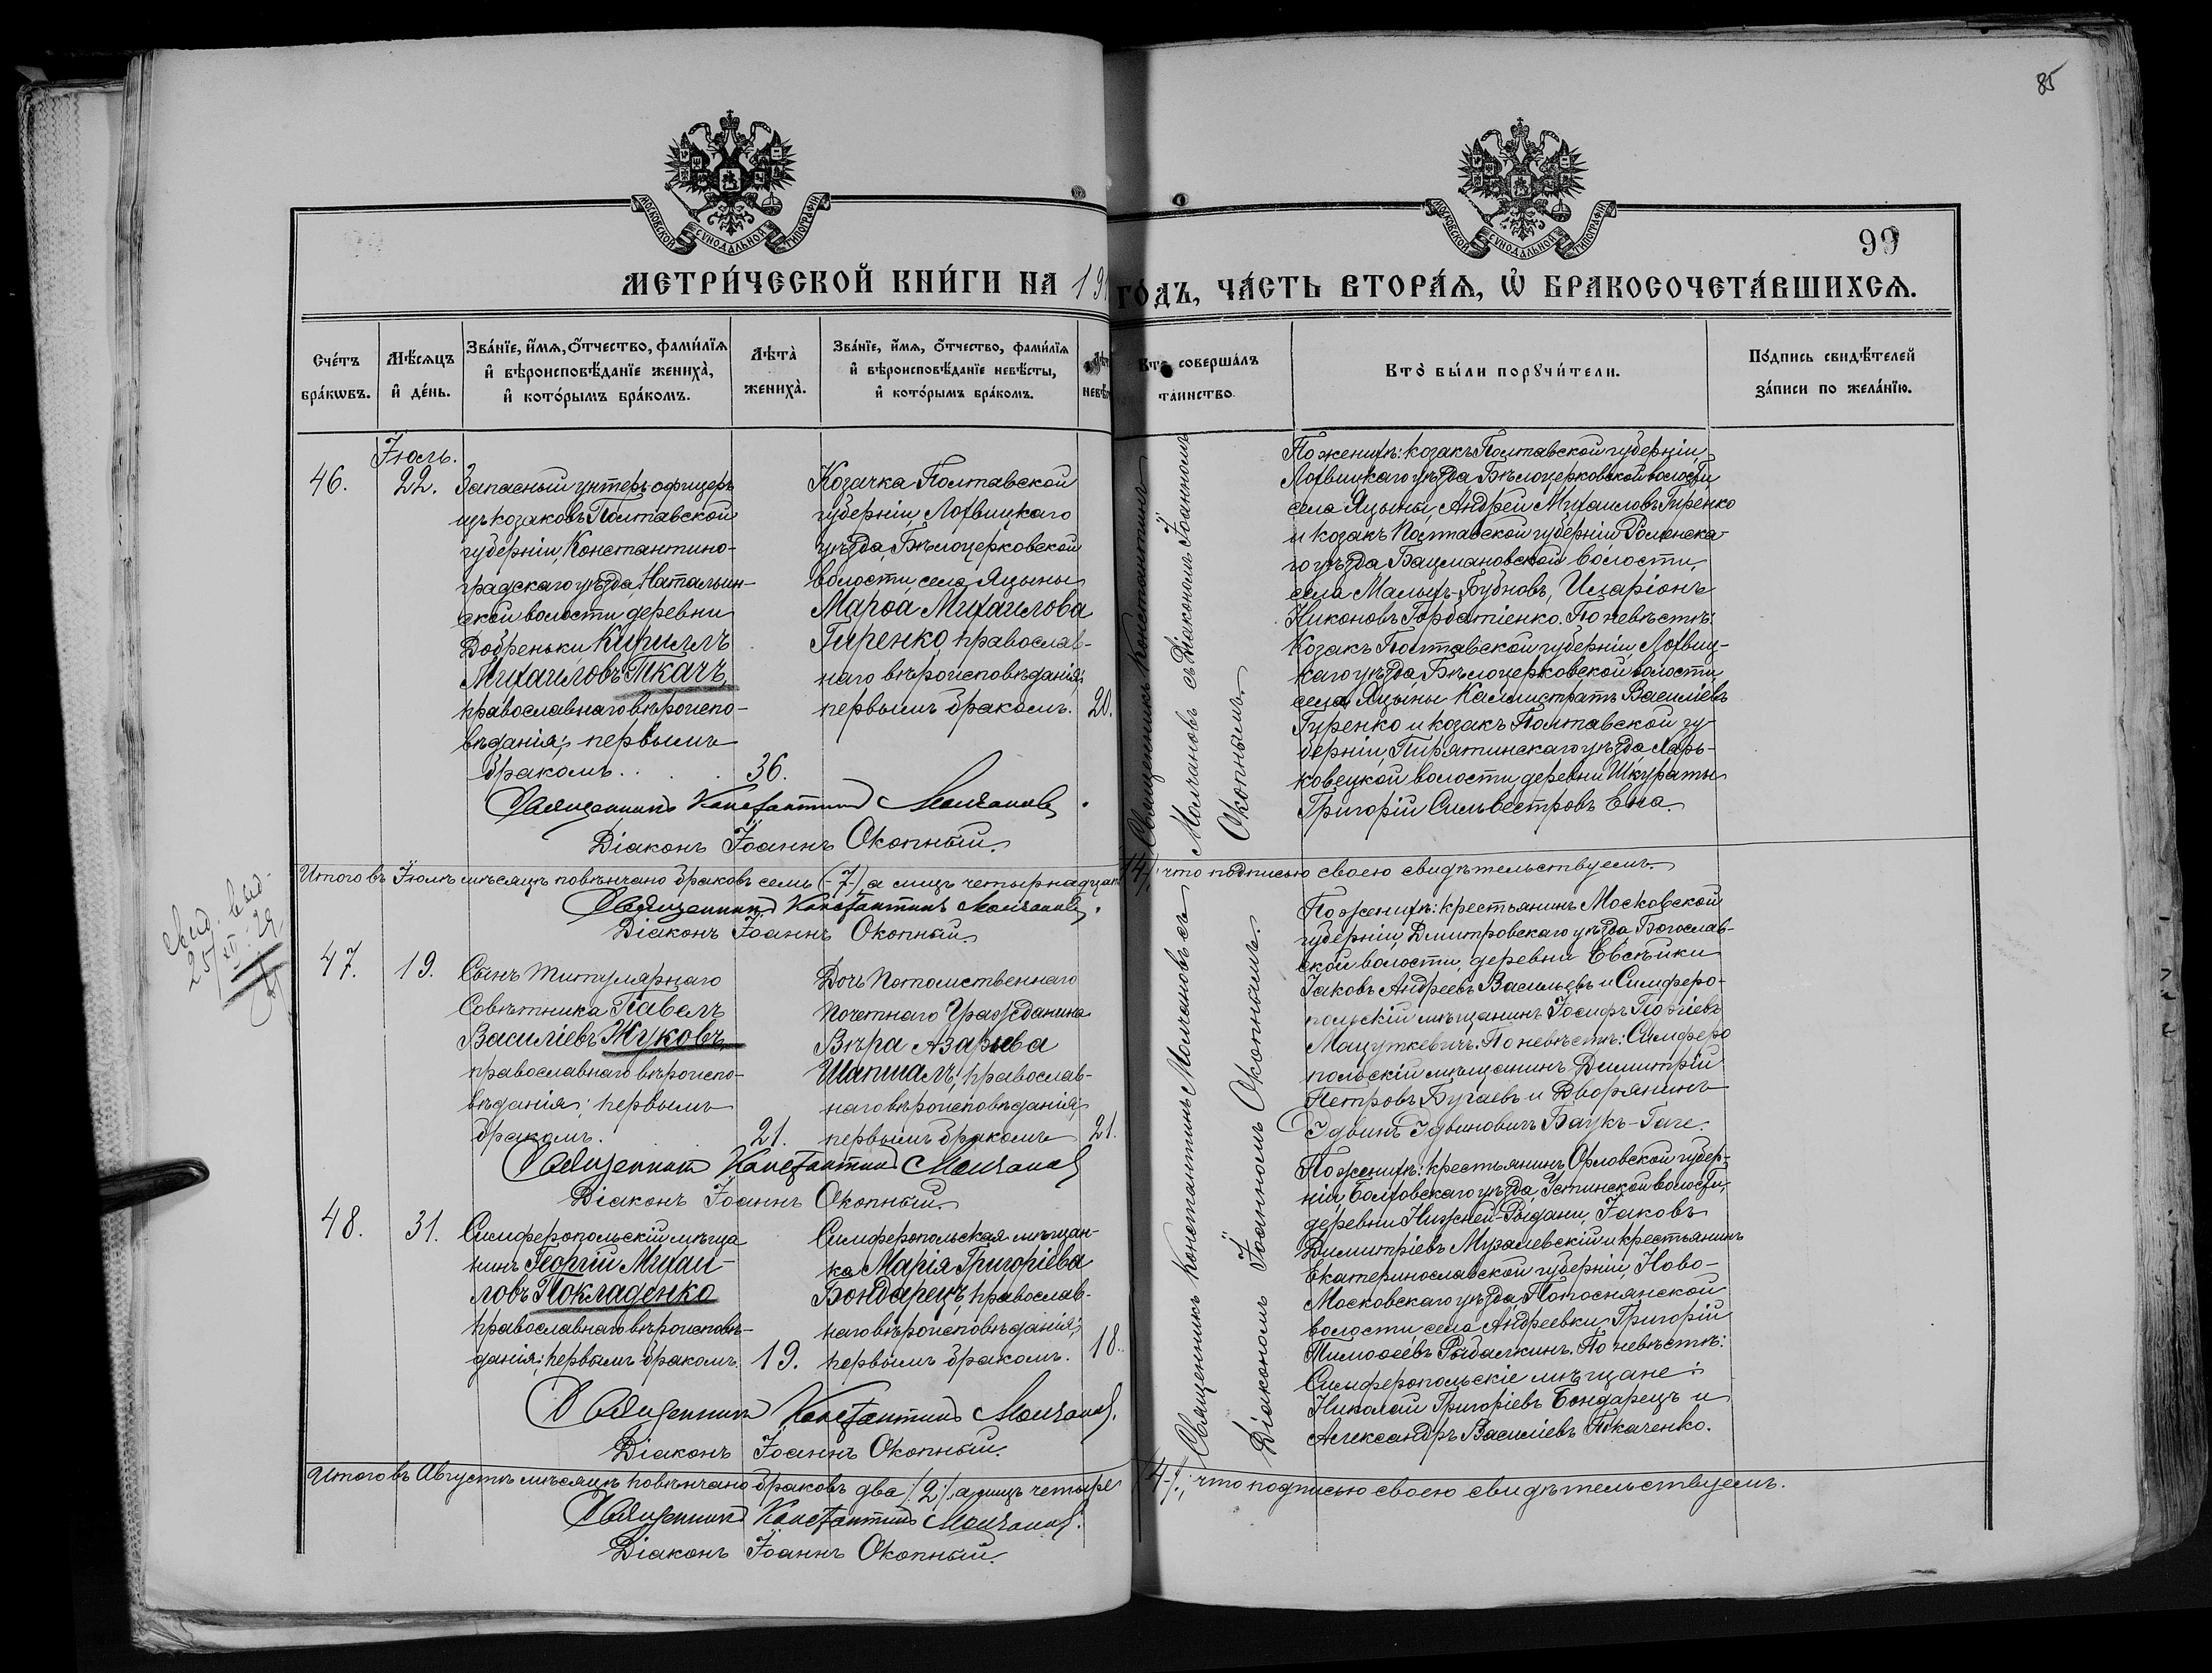 85
МОСКОВСКОЙ СУНОДАЛЬНОЙ ТИПОГРАФІИ
МОСКОВСКОЙ СУНОДАЛЬНОЙ ТИПОГРАФІИ
99
МЕТРИ́ЧЕСКОЙ КНИ́ГИ НА 191
ГО́ДЪ, ЧА́СТЬ ВТОРА́Я, Ѡ҆ БРАКОСОЧЕТА́ВШИХСЯ.
Сче́тъ бра́кѡвъ.
Мѣ́сяцъ и҆ де́нь.
Зва́нїе, и҆́мя, ѻ҆́тчество, фами́лїя
и҆ вѣроисповѣ́данїе жениха̀,
и҆ кото́рымъ бра́комъ.
Лѣта̀ жениха̀.
Зва́нїе, и҆́мя, ѻ҆́тчество, фами́лїя
и҆ вѣроисповѣ́данїе невѣ́сты,
и҆ кото́рымъ бра́комъ.
Кто̀ соверша́лъ та́инство
Кто̀ бы́ли порꙋчи́тели.
По́дпись свидѣ́телей
за́писи по жела́нїю.
Іюль.
46.
22.
Запасный унтеръ-офицеръ
изъ козаковъ Полтавской
губерніи, Константино-
градскаго уѣзда Натальин-
ской волости деревни
Добреньки Кириллъ
Михаиловъ Ткачъ,
православнаго вѣроиспо-
вѣданія; первымъ
бракомъ.
36.
Козачка Полтавской
губерніи, Лохвицкаго
уѣзда, Бѣлоцерковской
волости, села Яцыны
Марѳа Михаилова
Гиренко, православ-
наго вѣроисповѣданія;
первымъ бракомъ.
20.
Священникъ Константинъ Молчановъ.
Діаконъ Іоаннъ Окопный.
Священникъ Константинъ Молчановъ съ Діакономъ Іоанномъ Окопнымъ.
По женихѣ: козакъ Полтавской губерніи,
Лохвицкаго уѣзда Бѣлоцерковской волости
села Яцыны, Андрей Михаиловъ Гиренко
и козакъ Полтавской губерніи Роменска-
го уѣзда Бацмановской волости,
села Малыхъ-Бубновъ, Иларіонъ
Никоновъ Горбатіенко. По невѣстѣ:
Козакъ Полтавской губерніи, Лохвиц-
каго уѣзда, Бѣлоцерковской волости
села Яцыны Каллистратъ Василіевъ
Гуренко и козакъ Полтавской гу-
берніи, Пирятинскаго уѣзда, Харь-
ковецкой волости, деревни Шкураты
Григорій Сильвестровъ Ена.
Итого въ Іюлѣ мѣсяцѣ повѣнчано браковъ семь (-7-), а лицъ четырнадцать
14; что подписью своею свидѣтельствуемъ.
Священникъ Константинъ Молчановъ.
Діаконъ Іоаннъ Окопный.
47.
19.
Сынъ титулярнаго
Совѣтника Павелъ
Василіевъ Жуковъ,
православнаго вѣроиспо-
вѣданія; первымъ
бракомъ.
21.
Дочь Потомственнаго
Почетнаго Гражданина
Вѣра Азарьева
Шапшалъ, православ-
наго вѣроисповѣданія;
первымъ бракомъ
21.
Священникъ Константинъ Молчановъ
Діаконъ Іоаннъ Окопный.
Священникъ Константинъ Молчановъ съ
Діакономъ Іоанномъ Окопнымъ.
По женихѣ: крестьянинъ Московской
губерніи, Дмитровскаго уѣзда Богослав-
ской волости, деревни Евсѣйки
Іаковъ Андреевъ Васильевъ и Симферо-
польскій мѣщанинъ Іосифъ Георгіевъ
Мацуткевичъ. По невѣстѣ: Симферо
польскій мѣщанинъ Димитрій
Петровъ Бугаевъ и Дворянинъ
Эдвинъ Эдвиновичъ Баукъ-Гаге.
48.
31.
Симферопольскій мѣща
нинъ Георгій Михаи-
ловъ Покладенко
православнаго вѣроисповѣ-
данія; первымъ бракомъ.
19.
Симферопольская мѣщан-
ка Марія Григоріева
Бондарецъ, православ-
наго вѣроисповѣданія;
первымъ бракомъ.
18.
Священникъ Константинъ Молчановъ.
Діаконъ Іоаннъ Окопный.
По женихѣ: крестьянинъ Орловской губер-
ніи, Болховскаго уѣзда, Устинской волости,
деревни Нижней-Рыдани, Іаковъ
Димитріевъ Музалевскій и крестьянинъ
Екатеринославской губерніи, Ново-
Московскаго уѣзда,
волости, села Андреевки, Григорій
Тимоѳеевъ Рыбалкинъ. По невѣстѣ:
Симферопольскіе мѣщане:
Николай Григоріевъ Бондарецъ и
Александръ Василіевъ Ткаченко.
Итого въ Августѣ мѣсяцѣ повѣнчано браковъ два /:2:/, а лицъ четыре
/4-/.; что подписью своею свидѣтельствуемъ.
Священникъ Константинъ Молчановъ.
Діаконъ Іоаннъ Окопный.